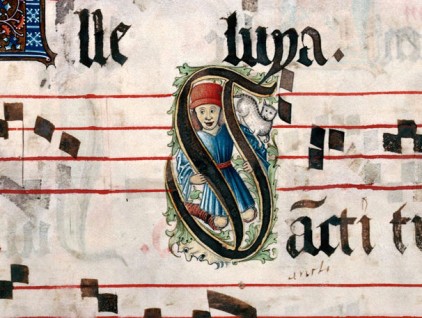 lle luya.
Sācti tu